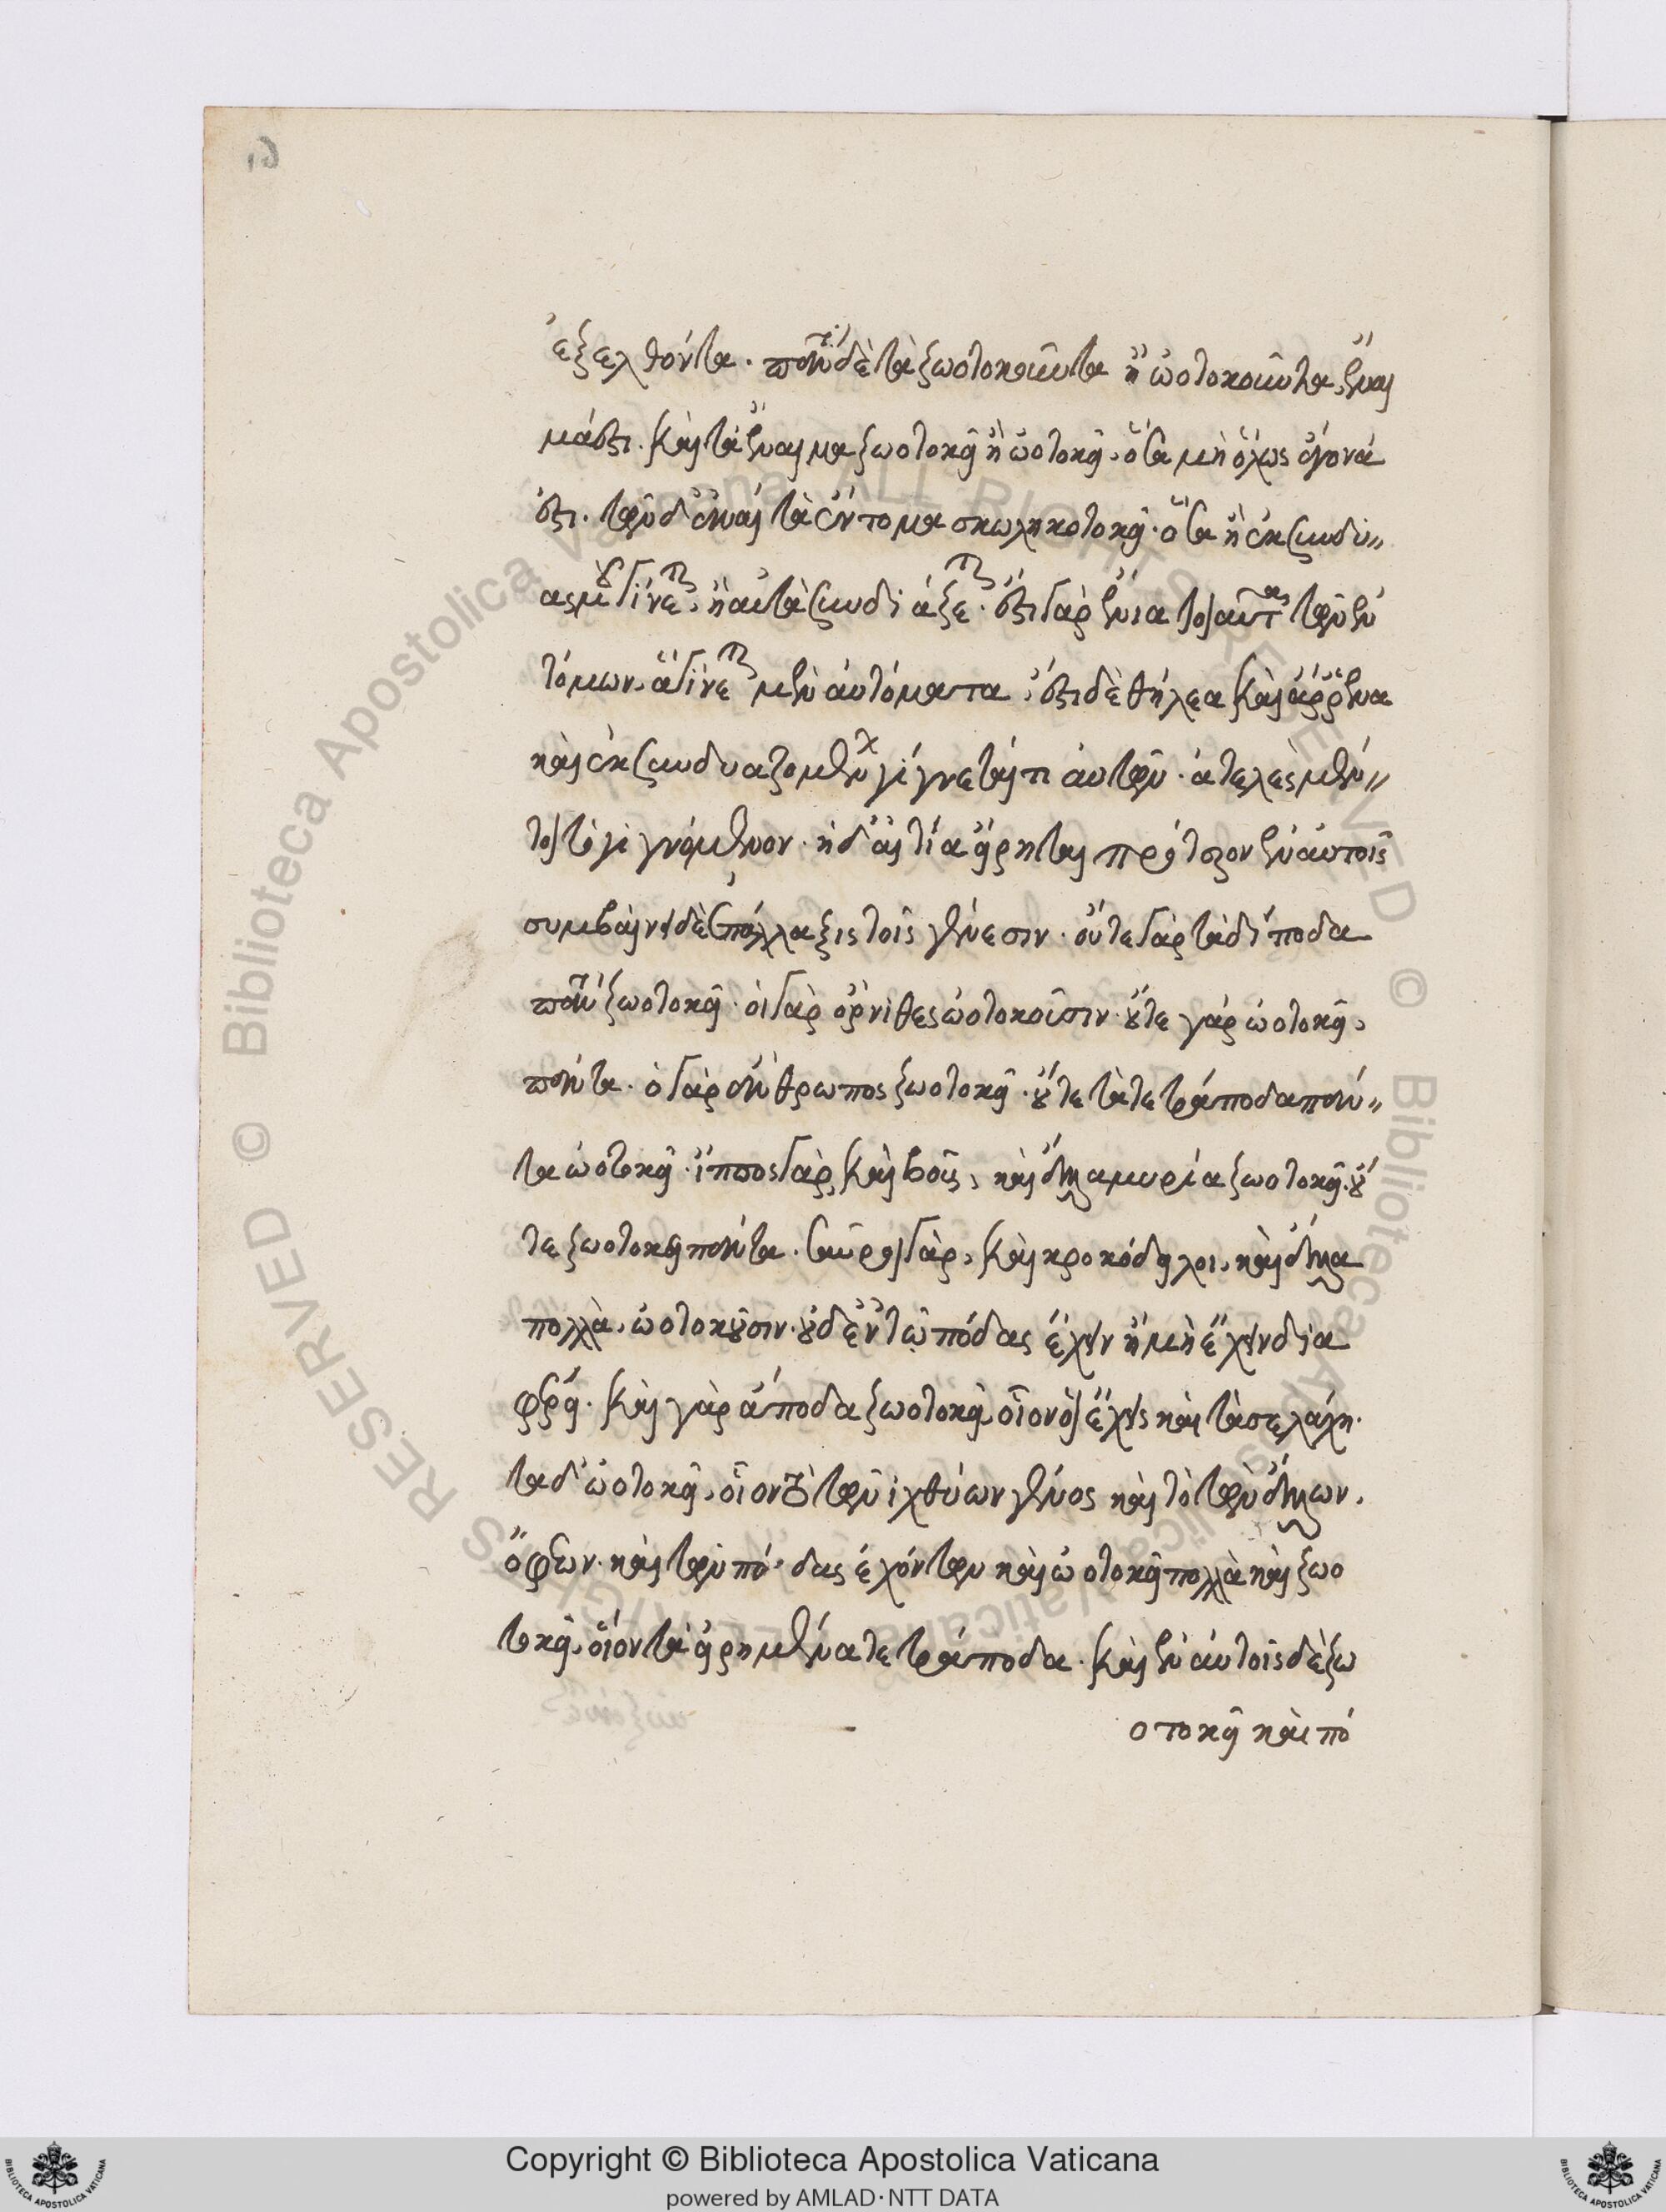 ἐξελθόντα. πάντα δὲ τὰ ζωοτοκοῦντα ἢ ὠοτοκοῦντα, ἔναι
μά ἐστι. καὶ τὰ ἔναιμα ζωοτοκεῖ ἢ ὠοτοκεῖ, ὅσα μὴ ὅλως ἄγονά
ἐστι. τῶν δ' ἀναίμων τὰ ἔντομα σκωληκοτοκεῖ. ὅσα ἢ ἐκ συνδυ
ασμοῦ γίνεται, ἢ αὐτὰ συνδιάζεται. ἔστι γὰρ ἔνια τοιαῦτα τῶν ἐν
τόμων, ἃ γίνεται μὲν αὐτόματα, ἔστι δὲ θήλεα καὶ ἄρρενα
καὶ ἐκ συνδυαζομένων γίγνεταί τι αὐτῶν. ἀτελὲς μέν
τοι τὸ γιγνόμενον. ἡ δ' αἰτία εἴρηται πρότερον ἐν αὐτοῖς
συμβαίνει δὲ ἐπάλλαξις τοῖς γένεσιν. οὔτε γὰρ τὰ δίποδα
πάντα ζωοτοκεῖ. οἱ γὰρ ὄρνιθες ὠοτοκοῦσιν. οὔτε γὰρ ὠοτοκεῖ,
πάντα. ὁ γὰρ ἄνθρωπος ζωοτοκεῖ. οὔτε τὰ τετράποδα πάν
τα ὠοτοκεῖ. ἵππος γὰρ, καὶ βοῦς, καὶ ἄλλα μυρία ζωοτοκεῖ. οὔ
τε ζωοτοκεῖ πάντα. σαῦροι γὰρ, καὶ κροκόδειλοι, καὶ ἄλλα
πολλὰ, ὠοτοκοῦσιν. οὐδ' ἐν τῷ πόδας ἔχειν ἢ μὴ ἔχειν δια
φέρει. καὶ γὰρ ἄποδα ζωοτοκεῖ, οἷον οἱ ἔχεις καὶ τὰ σελάχη.
τὰ δ' ὠοτοκεῖ, οἷον τὸ τῶν ἰχθύων γένος καὶ τὸ τῶν ἄλλων,
ὄφεων. καὶ τῶν πόδας ἐχόντων καὶ ὠοτοκεῖ πολλὰ καὶ ζωο
τοκεῖ, οἷον τὰ εἰρημένα τετράποδα. καὶ ἐν αὐτοῖς δὲ ζω
οτοκεῖ καὶ πό
Copyright © Biblioteca Apostolica Vaticana
powered by AMLAD·NTT DATA